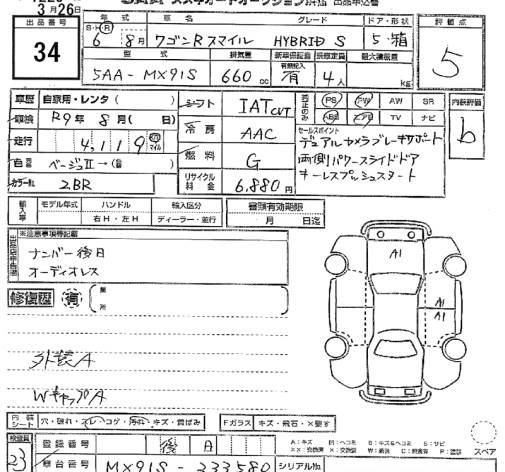 3月26日
出品番号
34
年式 車名 グレード ドア・形状
S・H・R 6 8月 ワゴンRスマイル HYBRID S 5・箱
型式 排気量 新車保証書 乗車定員 最大積載量
5AA-MX91S 660cc 有 4人 kg
評価点
5
車歴 自家用・レンタ( )
シフト IAT CVT
PS PW AW SR
ABS エアB TV ナビ
内装評価
b
車検 R9年8月( 日)
冷房 AAC
セールスポイント
デュアルカメラブレーキサポート
両側パワースライドドア
キーレスプッシュスタート
走行 4,119 km マイル
燃料 G
色 ベージュII→( )
カラーNo. ZBR
リサイクル料金 6,880円
輸入車 モデル年式 ハンドル 輸入区分
右H・左H ディーラー・並行
書類有効期限
月 日迄
※注意事項等記載
ナンバー後日
オーディオレス
A1
修復歴 有 箇所
A1
A1
外装A
WキャップA
内装シート 穴・破れ・スレ・コゲ・汚れ・キズ・黄ばみ
Fガラス キズ・飛石・×要す
スペア
検査員
23
登録番号 後日
A:キズ
車台番号 MX91S-233580 シリアルNo.